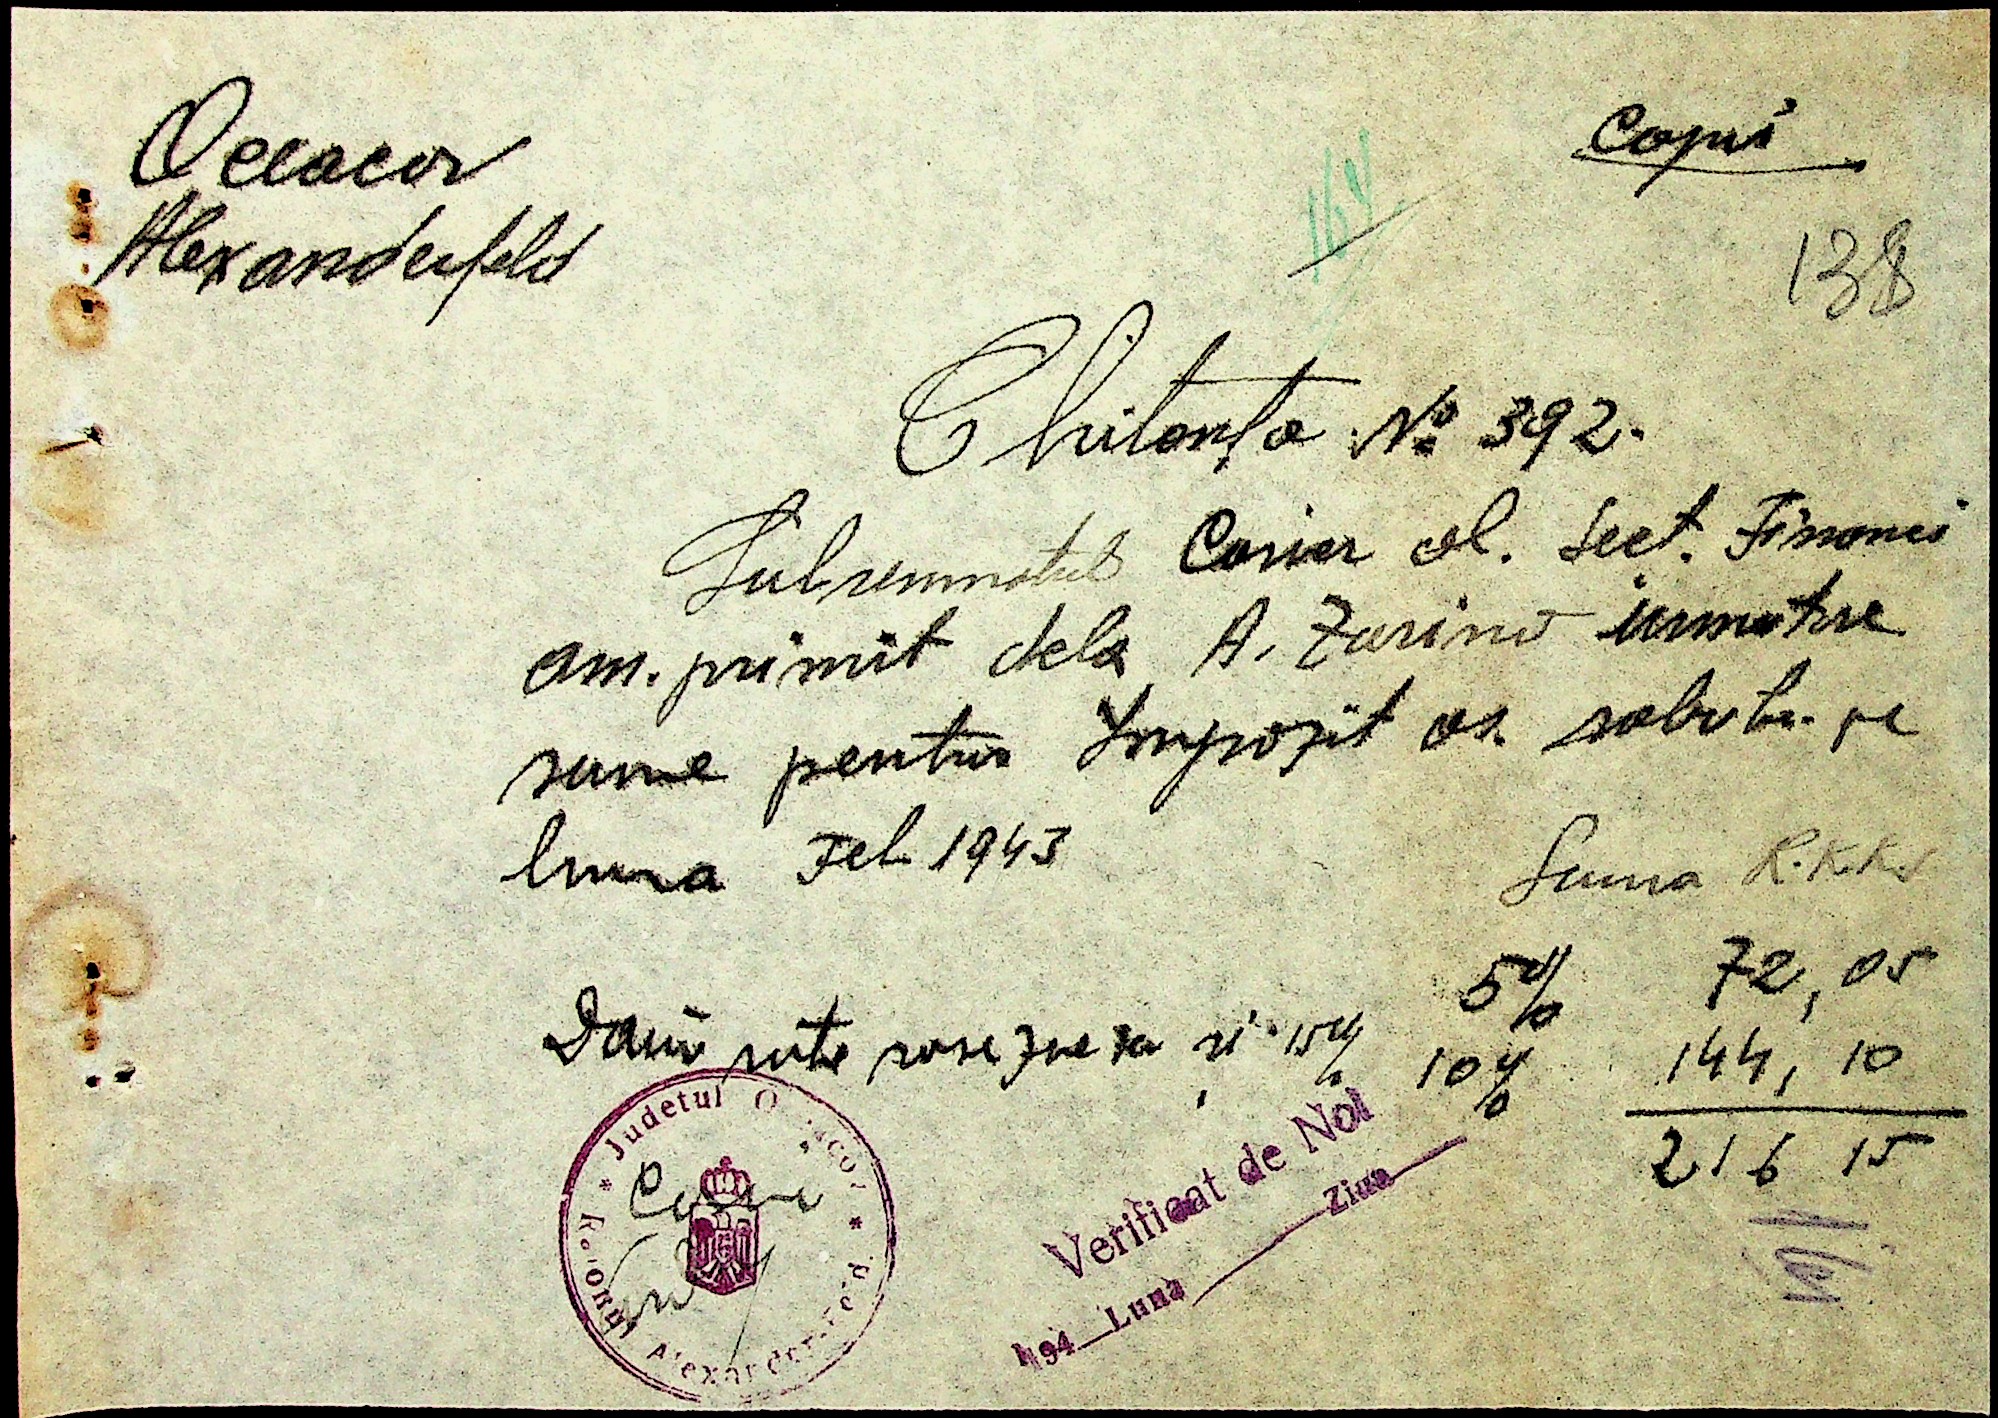 Oceacov
Alexanderfeld
Copie
164
138
Chitanța No 392.
Subsemnatul Casier al. Sect. Financi
am. primit dela A. Zarino urmatoare
sume pentru Impozit as. salut. pe
luna Feb 1943
Suma R.K.K.S
5% 72,05
Două sute sasesprezece si 15% 10% 144,10
216 15
* Judetul O acov * Raionul Alexanderfeld
Casier
Verificat de Noi
194 Luna Ziua